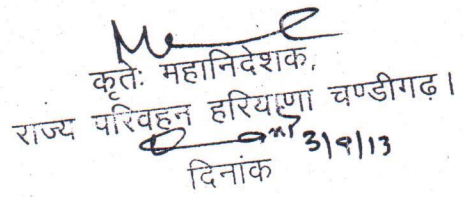 कृतेः महानिदेशक,
राज्य परिवहन हरियाणा चण्डीगढ़।
3/9/13
दिनांक